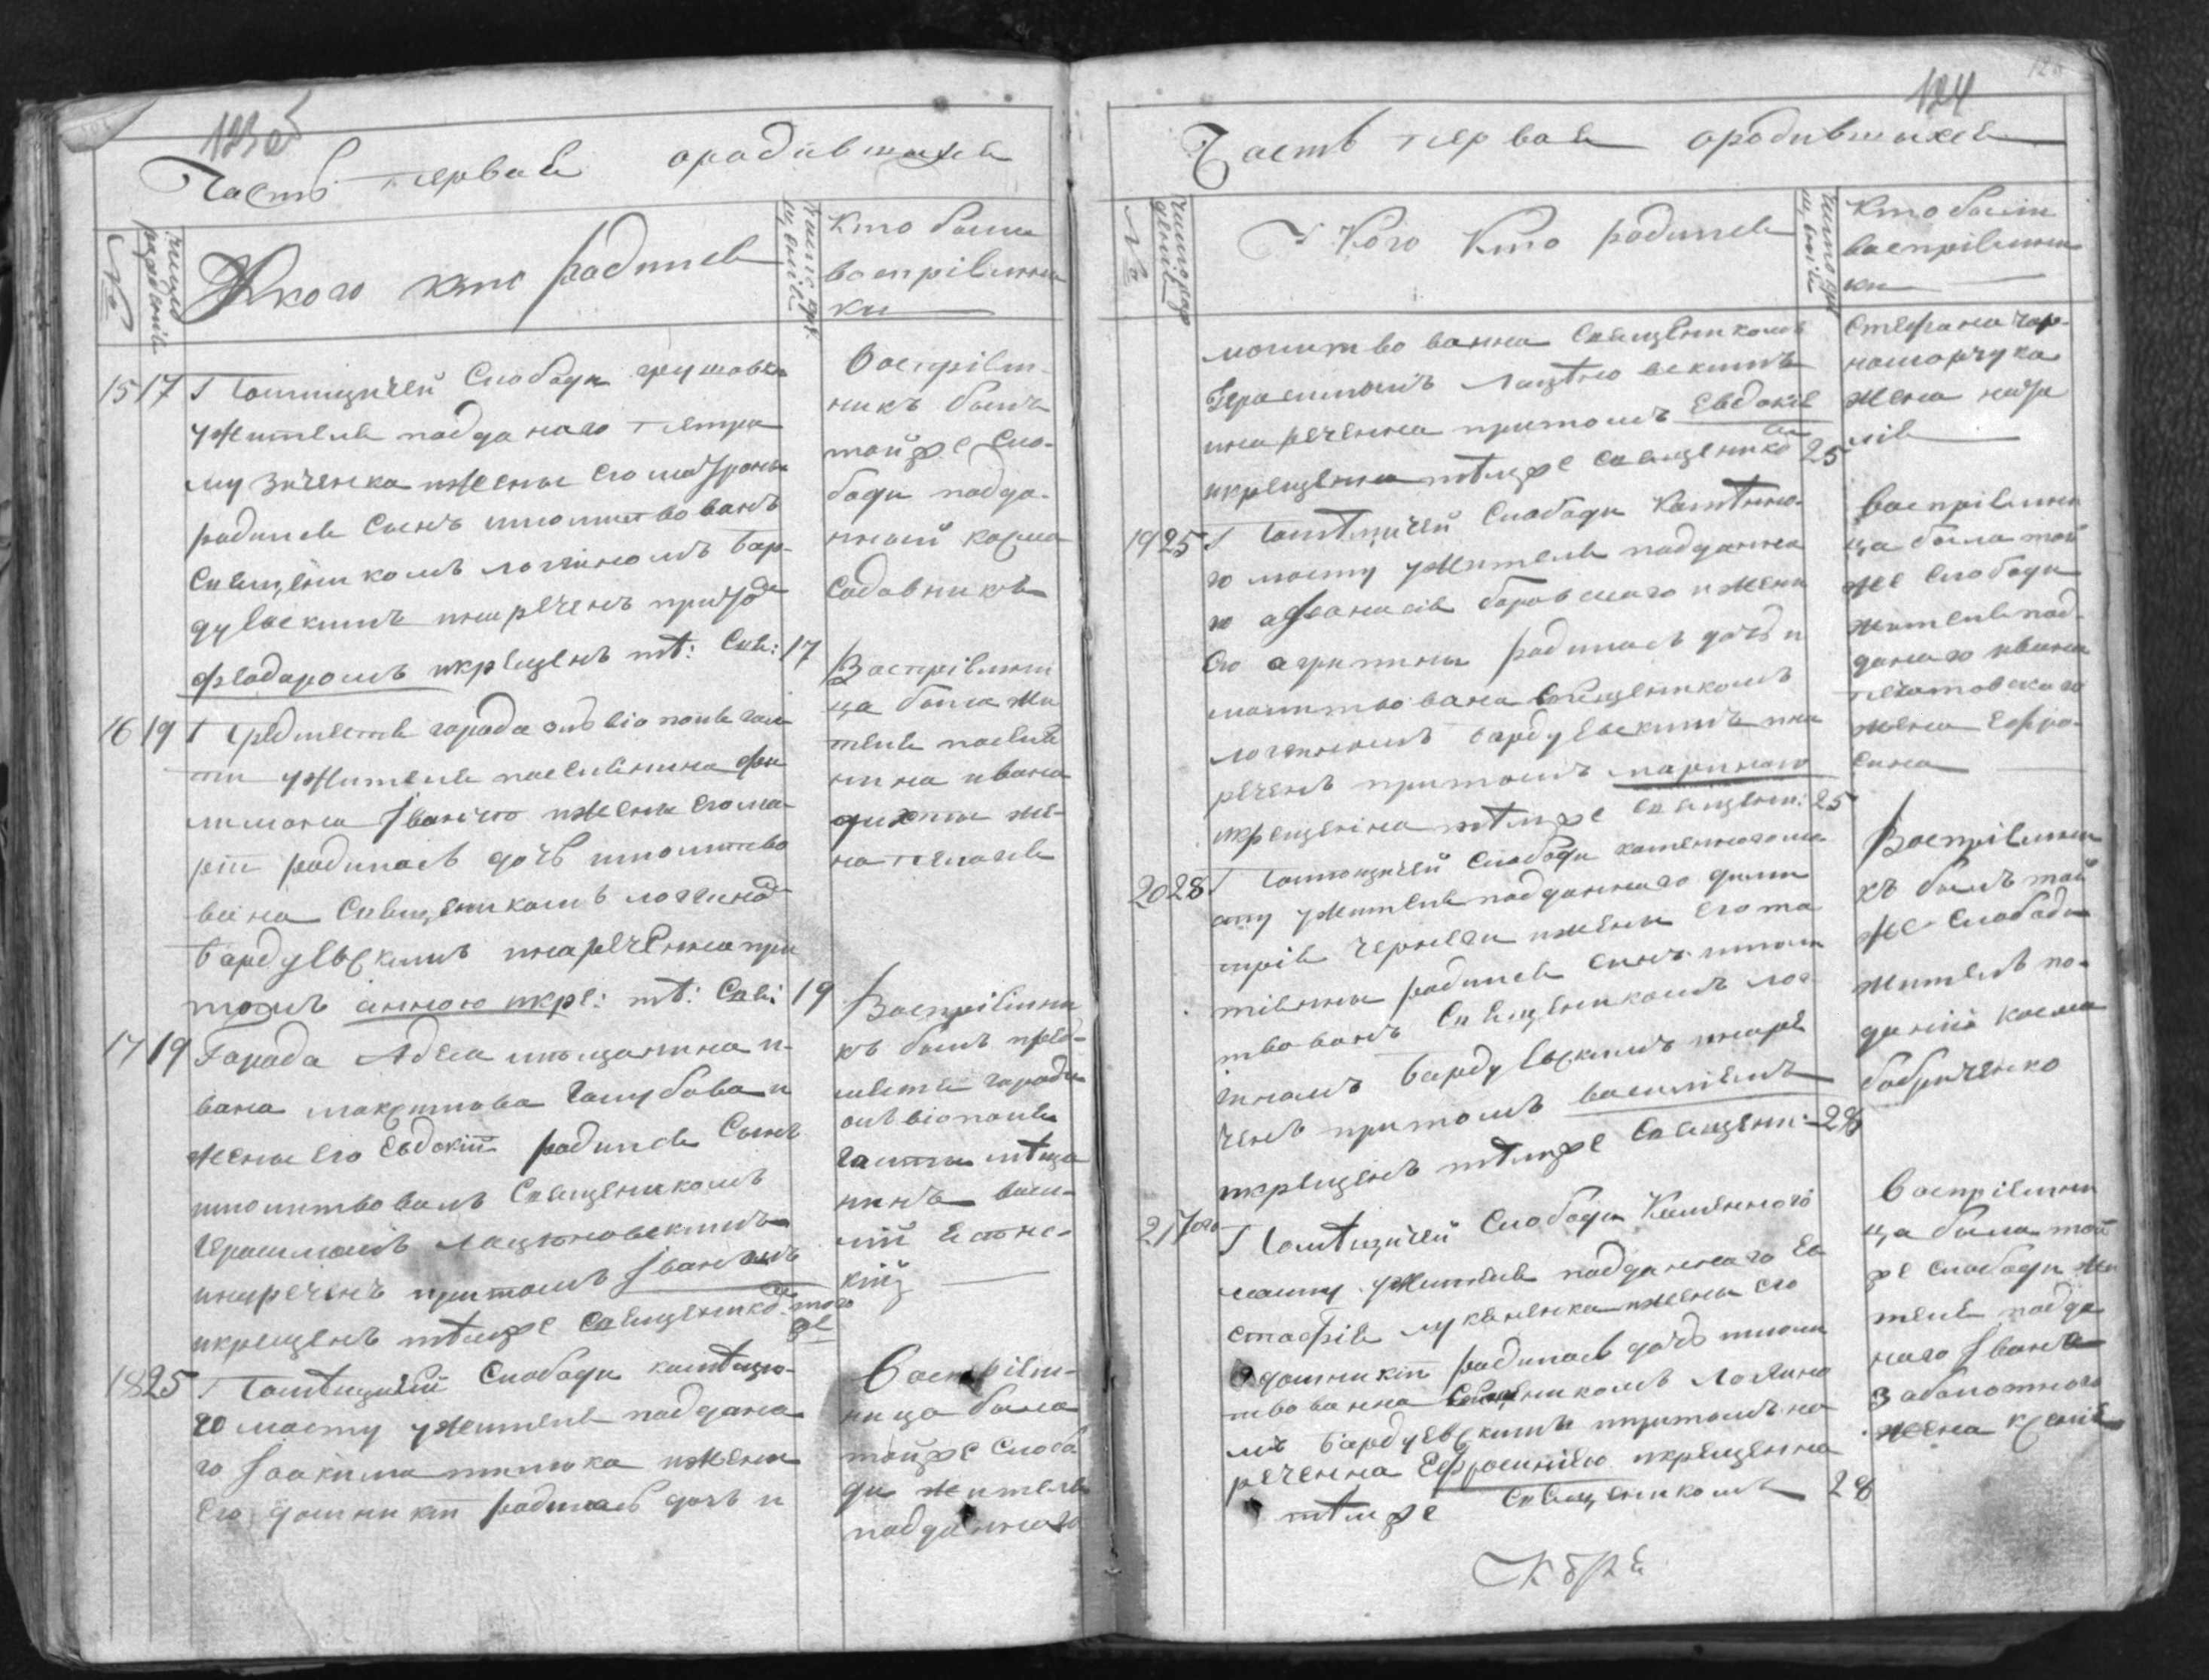 123об
Часть первая ородившихся
№
число рождения
Укого кто родился
число кре щения
Кто были
восприемни
ки
15 17 Помещичей Слободи грушовки
ужителя подданаго петра
музиченка ижены его матроны
родился Сынъ имолитвованъ
Священикомъ логиномъ бар-
дуевскимъ инареченъ притом
феодоромъ икрещенъ тѣ: Свя: 17
Восприем-
никъ былъ
тойже Сло-
боди подда-
нный козма
Садовникъ
16 19 предместя города
ти ужителя поселянина фи
лимона Іванчто ижены его ма-
ріи родилась дочь имолитво
вана Священикомъ логином
бардуевскимъ инареченна при
томъ анною икре: тѣ: Свя: 19
Восприемни
ца была жи
теля поселя
нина ивана
жe-
на пелагея
17 19 Города Адеса мещанина и-
вана макримова голубова и
жены его Евдокіи родился Сынъ
имолитвованъ Священикомъ
Герасимомъ лацановскимъ
инареченъ притомъ Іваномъ
икрещенъ тѣмже Священико того
же
Восприемни
къ былъ пред-
местя города
мѣща
нинъ васи-
лій
кій
18 25 Помѣщичей Слободи
го мосту ужителя поддана
го Іоакима ижени
его домникіи родилась дочь и
Восприем-
ница была
тойже Слобо
ди жителя
подданнаго
124
Часть первая ородившихся
№
число рож
дения
У Кого Кто родился
число кре
щения
Кто были
восприемни
ки
молитвованна Священикомъ
Герасимомъ лацановскимъ
инареченна притомъ Евдокіе
икрещенна тѣмже священико 25
Стефана чор-
номорчука
жена
19 25 Помѣщичей Слободи Камѣнно-
го мосту ужителя подданна
го афанасія боровскаго ижени
Его агрипини родилась дочь и
молитвована Священикомъ
логиномъ бардуевскимъ ина
реченъ притомъ мариною
икрещенна тѣмже священи: 25
Восприемни
ца была той
же Слободи
жителя под-
данаго ивана
жена Ефро-
сина
20 28 Помещичей Слободи каменного мо-
сту ужителя подданнаго дими
трія чернеги ижены его та
тіянны родился сынъ имоли
твованъ Священикомъ лог
іномъ бардуевскимъ инаре
ченъ притомъ василіемъ
икрещенъ тѣмже Священи: 28
Восприемни
къ былъ той
же Слободи
житель по-
данній косма
бобриченко
21 7ого Помѣщичей Слободи Каменного
мосту ужителя подданнаго Ев
стафія лукяненка ижены его
домникіи родилась дочь имоли
твованна Священикомъ Логино
мъ бардуевскимъ ипритомъ на
реченна Ефросиниею икрещенна
тѣмже Священикомъ 28
Восприемни
ца была той
же слободи жи
теля подда
наго Івана
Заболотного
жена ксенія